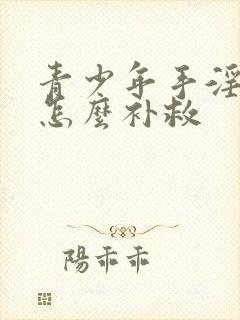 青少年手淫
怎麼补救
陽乖乖